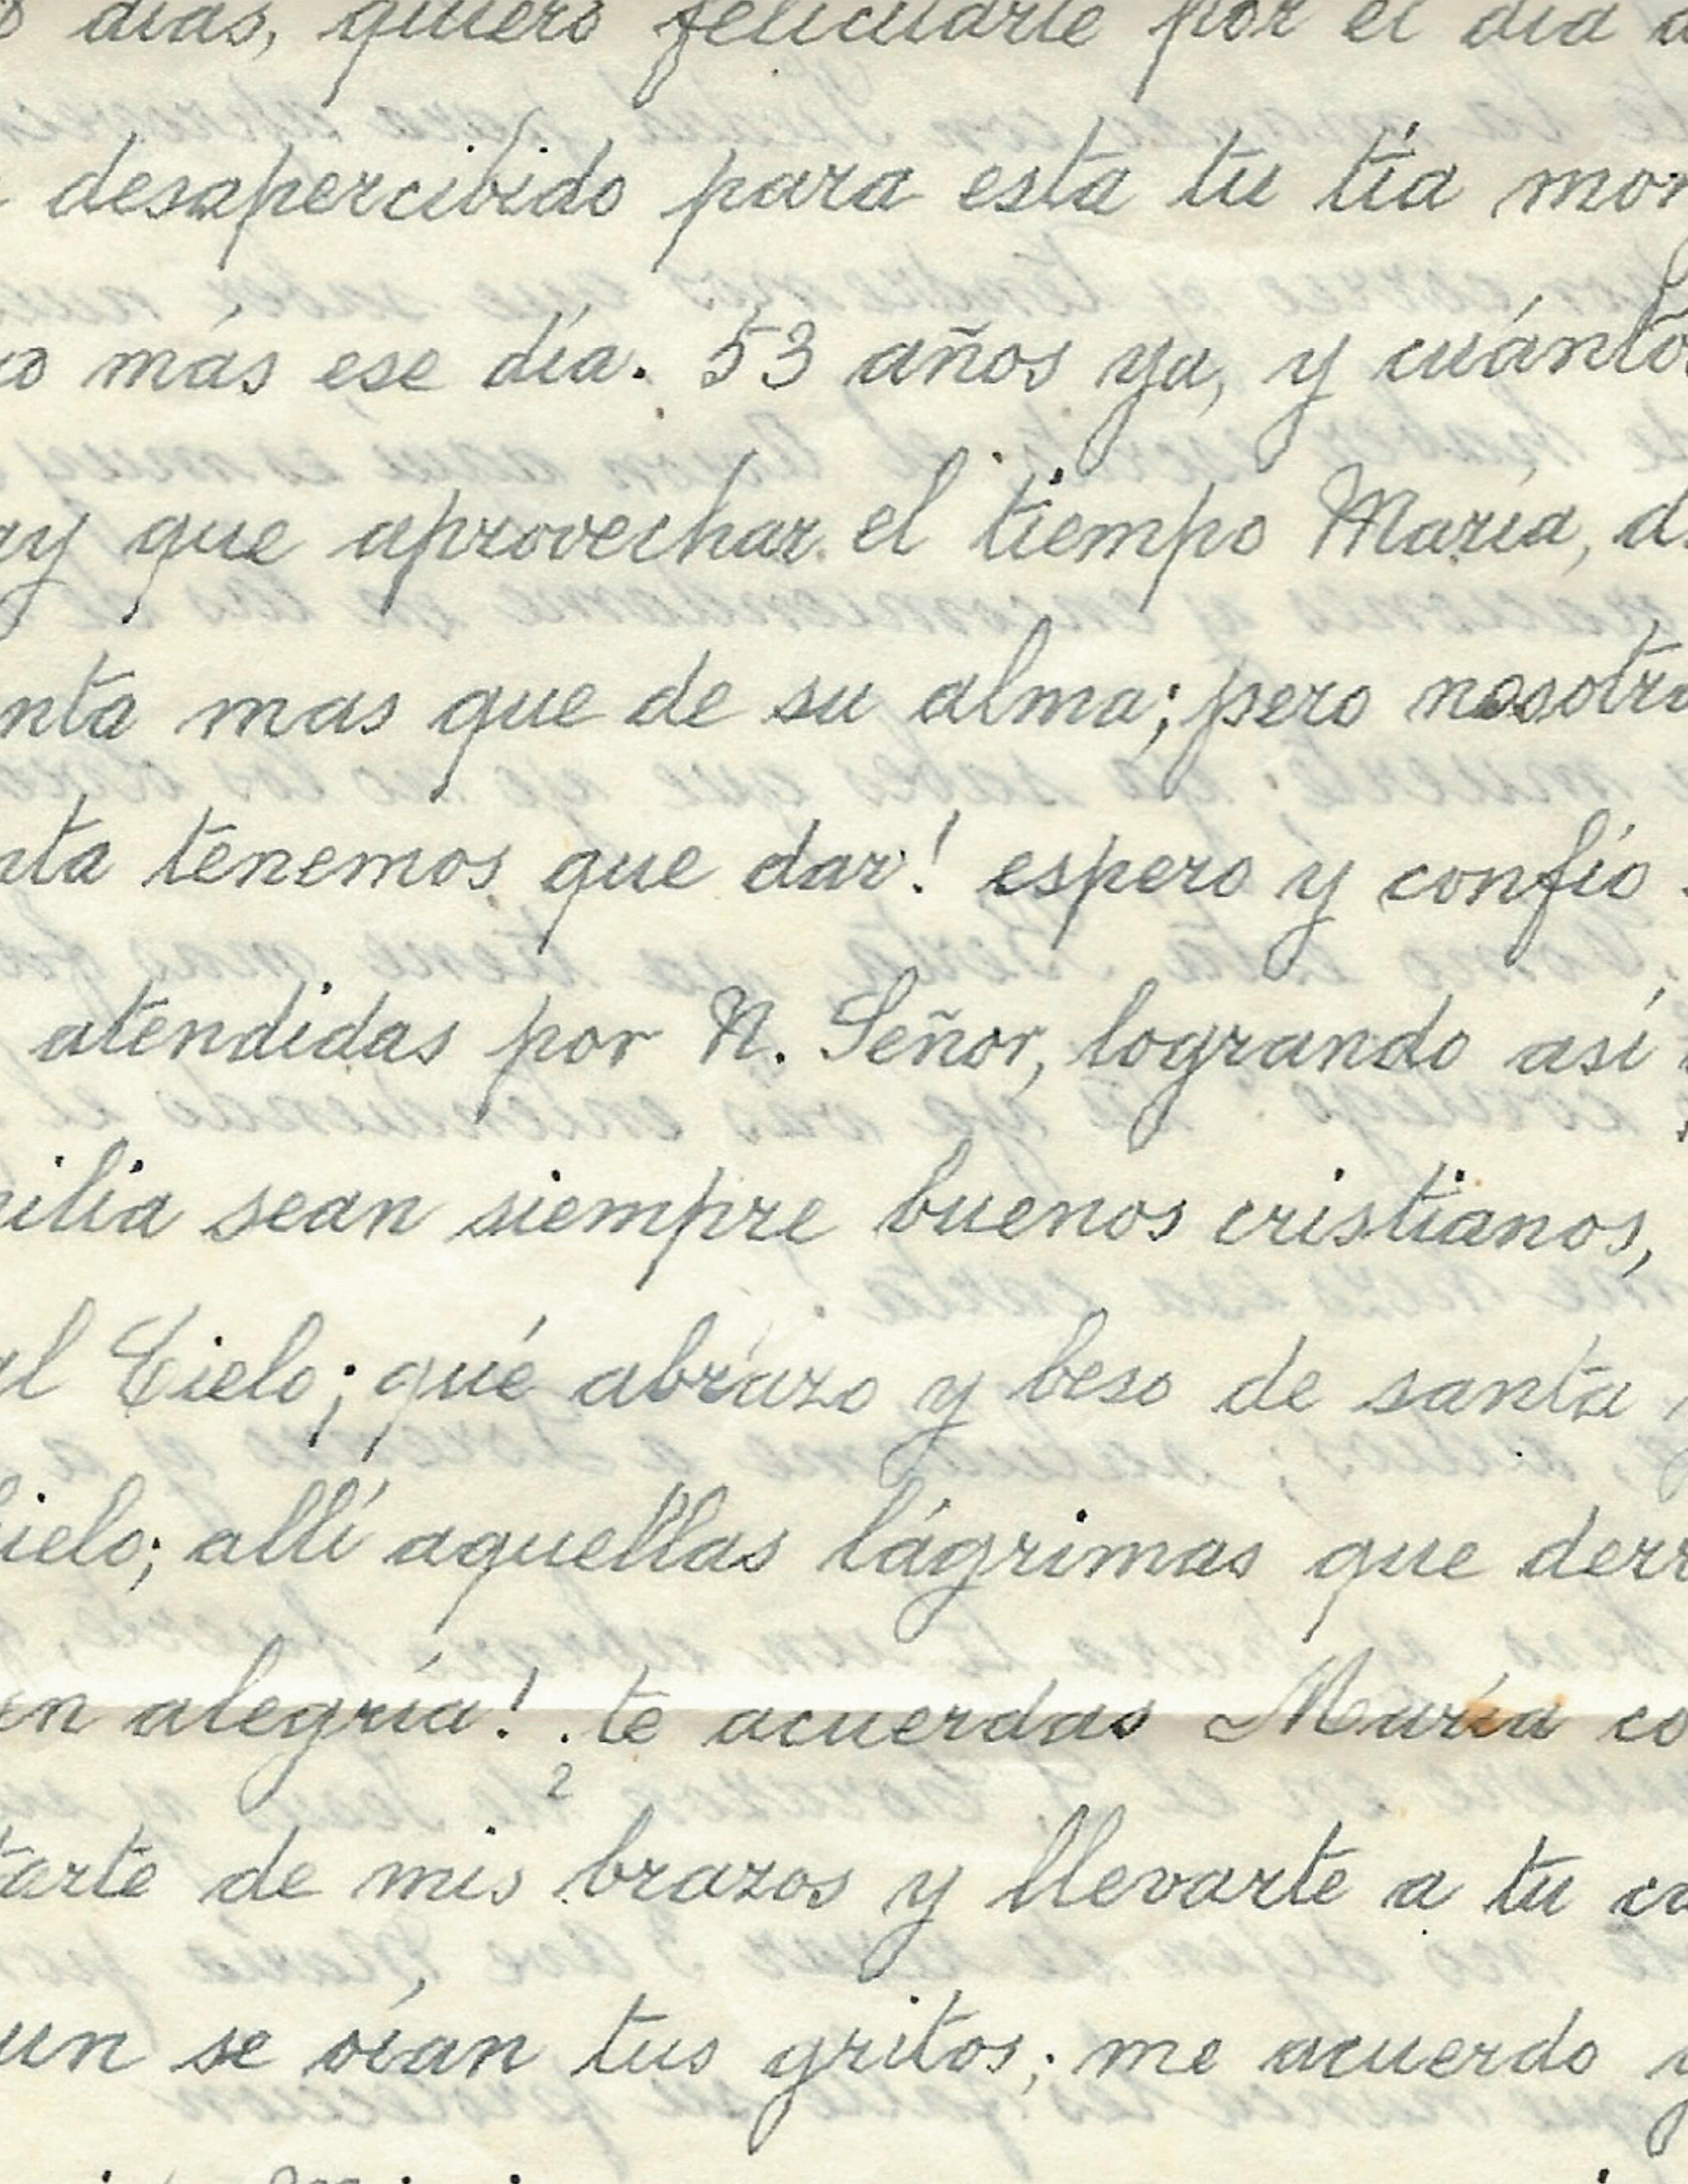 días, quiero felicitarte por el día
desapercibido para esta tu tía
más ese día. 53 años ya, y cuánto
que aprovechar el tiempo María, d
nta mas que de su alma; pero nosotr
nta tenemos que dar! espero y confío
atendidas por N. Señor, logrando así
ilia sean siempre buenos cristianos,
al Cielo; qué abrazo y beso de santa
ielo; allí aquellas lágrimas que derr
en alegría! ¿te acuerdas María co
tarte de mis brazos y llevarte a tu ca
un se oían tus gritos; me acuerdo y